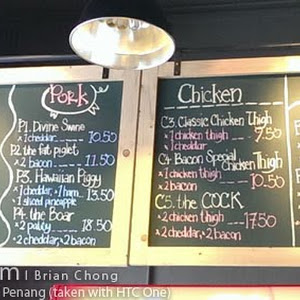 Pork
P1. Divine Swine
x 1 cheddar 10.50
P2. the fat piglet
x 2 bacon 11.50
P3. Hawaiian Piggy
x 1 cheddar, x 1 ham 13.50
x 1 sliced pineapple
P4. the Boar
x 2 patty 18.50
x 2 cheddar, x 2 bacon
Chicken
C3. Classic Chicken Thigh
x 1 chicken thigh 9.50
x 1 cheddar
C4. Bacon Special Chicken Thigh
x 1 chicken thigh 10.50
x 2 bacon
C5. the COCK
x 2 chicken thigh 17.50
x 2 cheddar, x 2 bacon
m | Brian Chong
Penang (taken with HTC One)